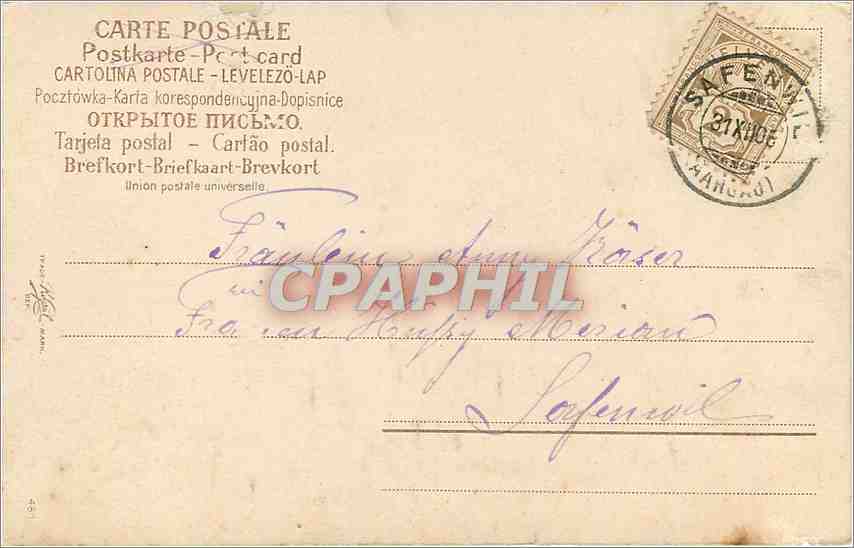 CARTE POSTALE
Postkarte-Post card
CARTOLINA POSTALE-LEVELEZÖ-LAP
Pocztówka-Karta korespondencyjna-Dopisnice
ОТКРЫТОЕ ПИСЬМО.
Tarjeta postal — Cartão postal.
Brefkort-Briefkaart-Brevkort
Union postale universelle.
SAFENWIL
31 XII 05
(AARGAU)
Fräulein Anny Käser
CPAPHIL
Hüssy Merian
Safenwil
TRADE
MARK.
481